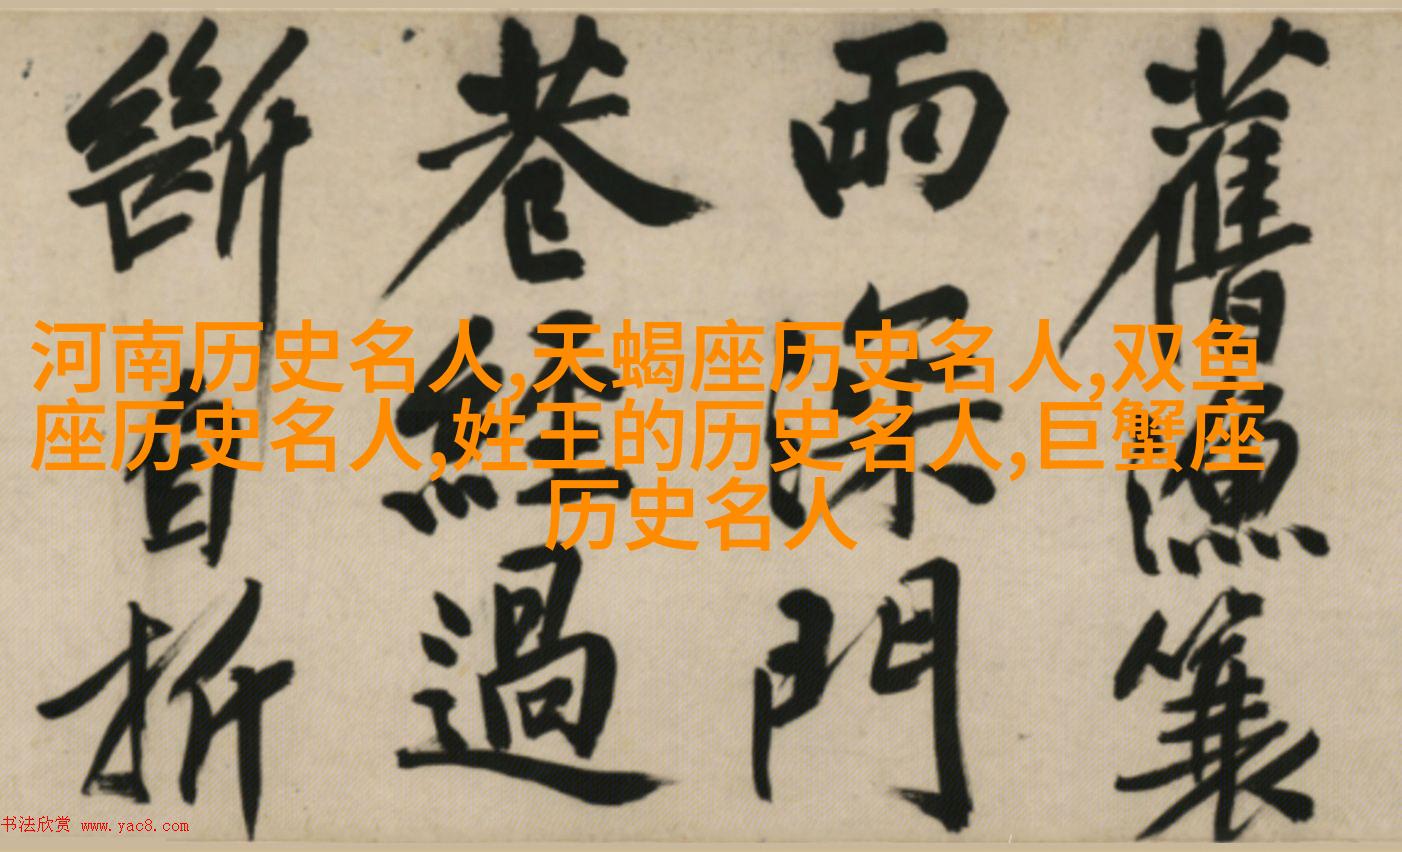 舊簑
雨深門
巷經過
斷自折
河南历史名人,天蝎座历史名人,双鱼
座历史名人,姓王的历史名人,巨蟹座
历史名人
书法欣赏 www.yac8.com